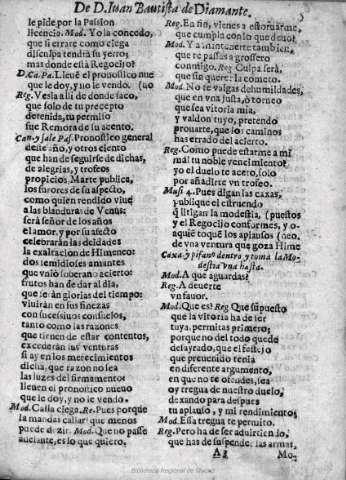 De D. Iuan Bautista de Diamante. 5
le pide por la Passion
licencio. Mod. Yo la concedo,
que si errare como ciega
disculpa tendrà su yerro;
mas donde està Regocijo?
D. Ca. Pa. Lleuè el pronostico nue
que le doy, y no le vendo. (uo
Reg. Vesla alli de donde saco,
que solo de tu precepto
detenida, tu permiso
fue Remora de su acento.
Can. y sale Pas. Pronostico general
deste año, y otros ciento
que han de seguirse de dichas,
de alegrias, y trofeos
propicios, Marte publica,
los furores de su aspecto,
como quien rendido viue
a las blanduras de Venus:
serà señor de los años
el amor, y por su afecto
celebraràn las deidades
la exaltacion de Himeneo:
dos semidioses amantes
que vniò soberano acierto:
frutos han de dar al dia,
que seràn glorias del tiempo:
viuiràn en sus finezas
con sucessiuos consuelos,
tanto como las razones
que tienen de estar contentos,
excederàn sus venturas
si ay en los merecimientos
dicha, que razon no sea
las luzes del firmamento
lleuen el pronostico nueuo
que le doy, y no le vendo.
Mod. Calla ciega. Re. Pues porque
la mandas callar? que menos
puede dezir. Mod. Que no passe
adelante, es lo que quiero.
Reg. En fin, vienes a estoruarme,
que cumpla con lo que deuo?
Mod. Y a mantenerte tambien,
que te passas a grossero
conmigo. Reg. Culpa serà,
que sin querer la cometo.
Mod. No te valgas de humildades,
que en vna justa, ò torneo
que sea vitoria mia,
y valdon tuyo, pretendo
prouarte, que los caminos
has errado del acierto.
Reg. Como puede estarme a mi
mal tu noble vencimiento?
yo el duelo te aceto, solo
por añadirte vn trofeo.
Musi 4. Pues digan las caxas,
publique el estruendo
q̃ litigan la modestia, (puestos
y el Regocijo conformes, y o-
aqui è toque los aplausos (neo,
de vna ventura que goza Hime
Caxa y pifano dentro y toma la Mo-
destia vna hasta.
Mod. A que aguardas?
Reg. A deuerte
vn fauor.
Mod. Que es? Reg. Que supuesto
que la vitoria ha de ser
tuya, permitas primero;
porque no del todo quede
desayrado, que el festejo
que preuenido tenia
en diferente argumento,
en que no te ofendes, sea
oy tregua de nuestro duelo,
dexando para despues
tu aplauso, y mi rendimiento.
Mod. Essa tregua te permito.
Reg. Pero ha de ser aduirtiendo,
que has de suspender las armas,
A 3 Mo-
Biblioteca Regional de Murcia